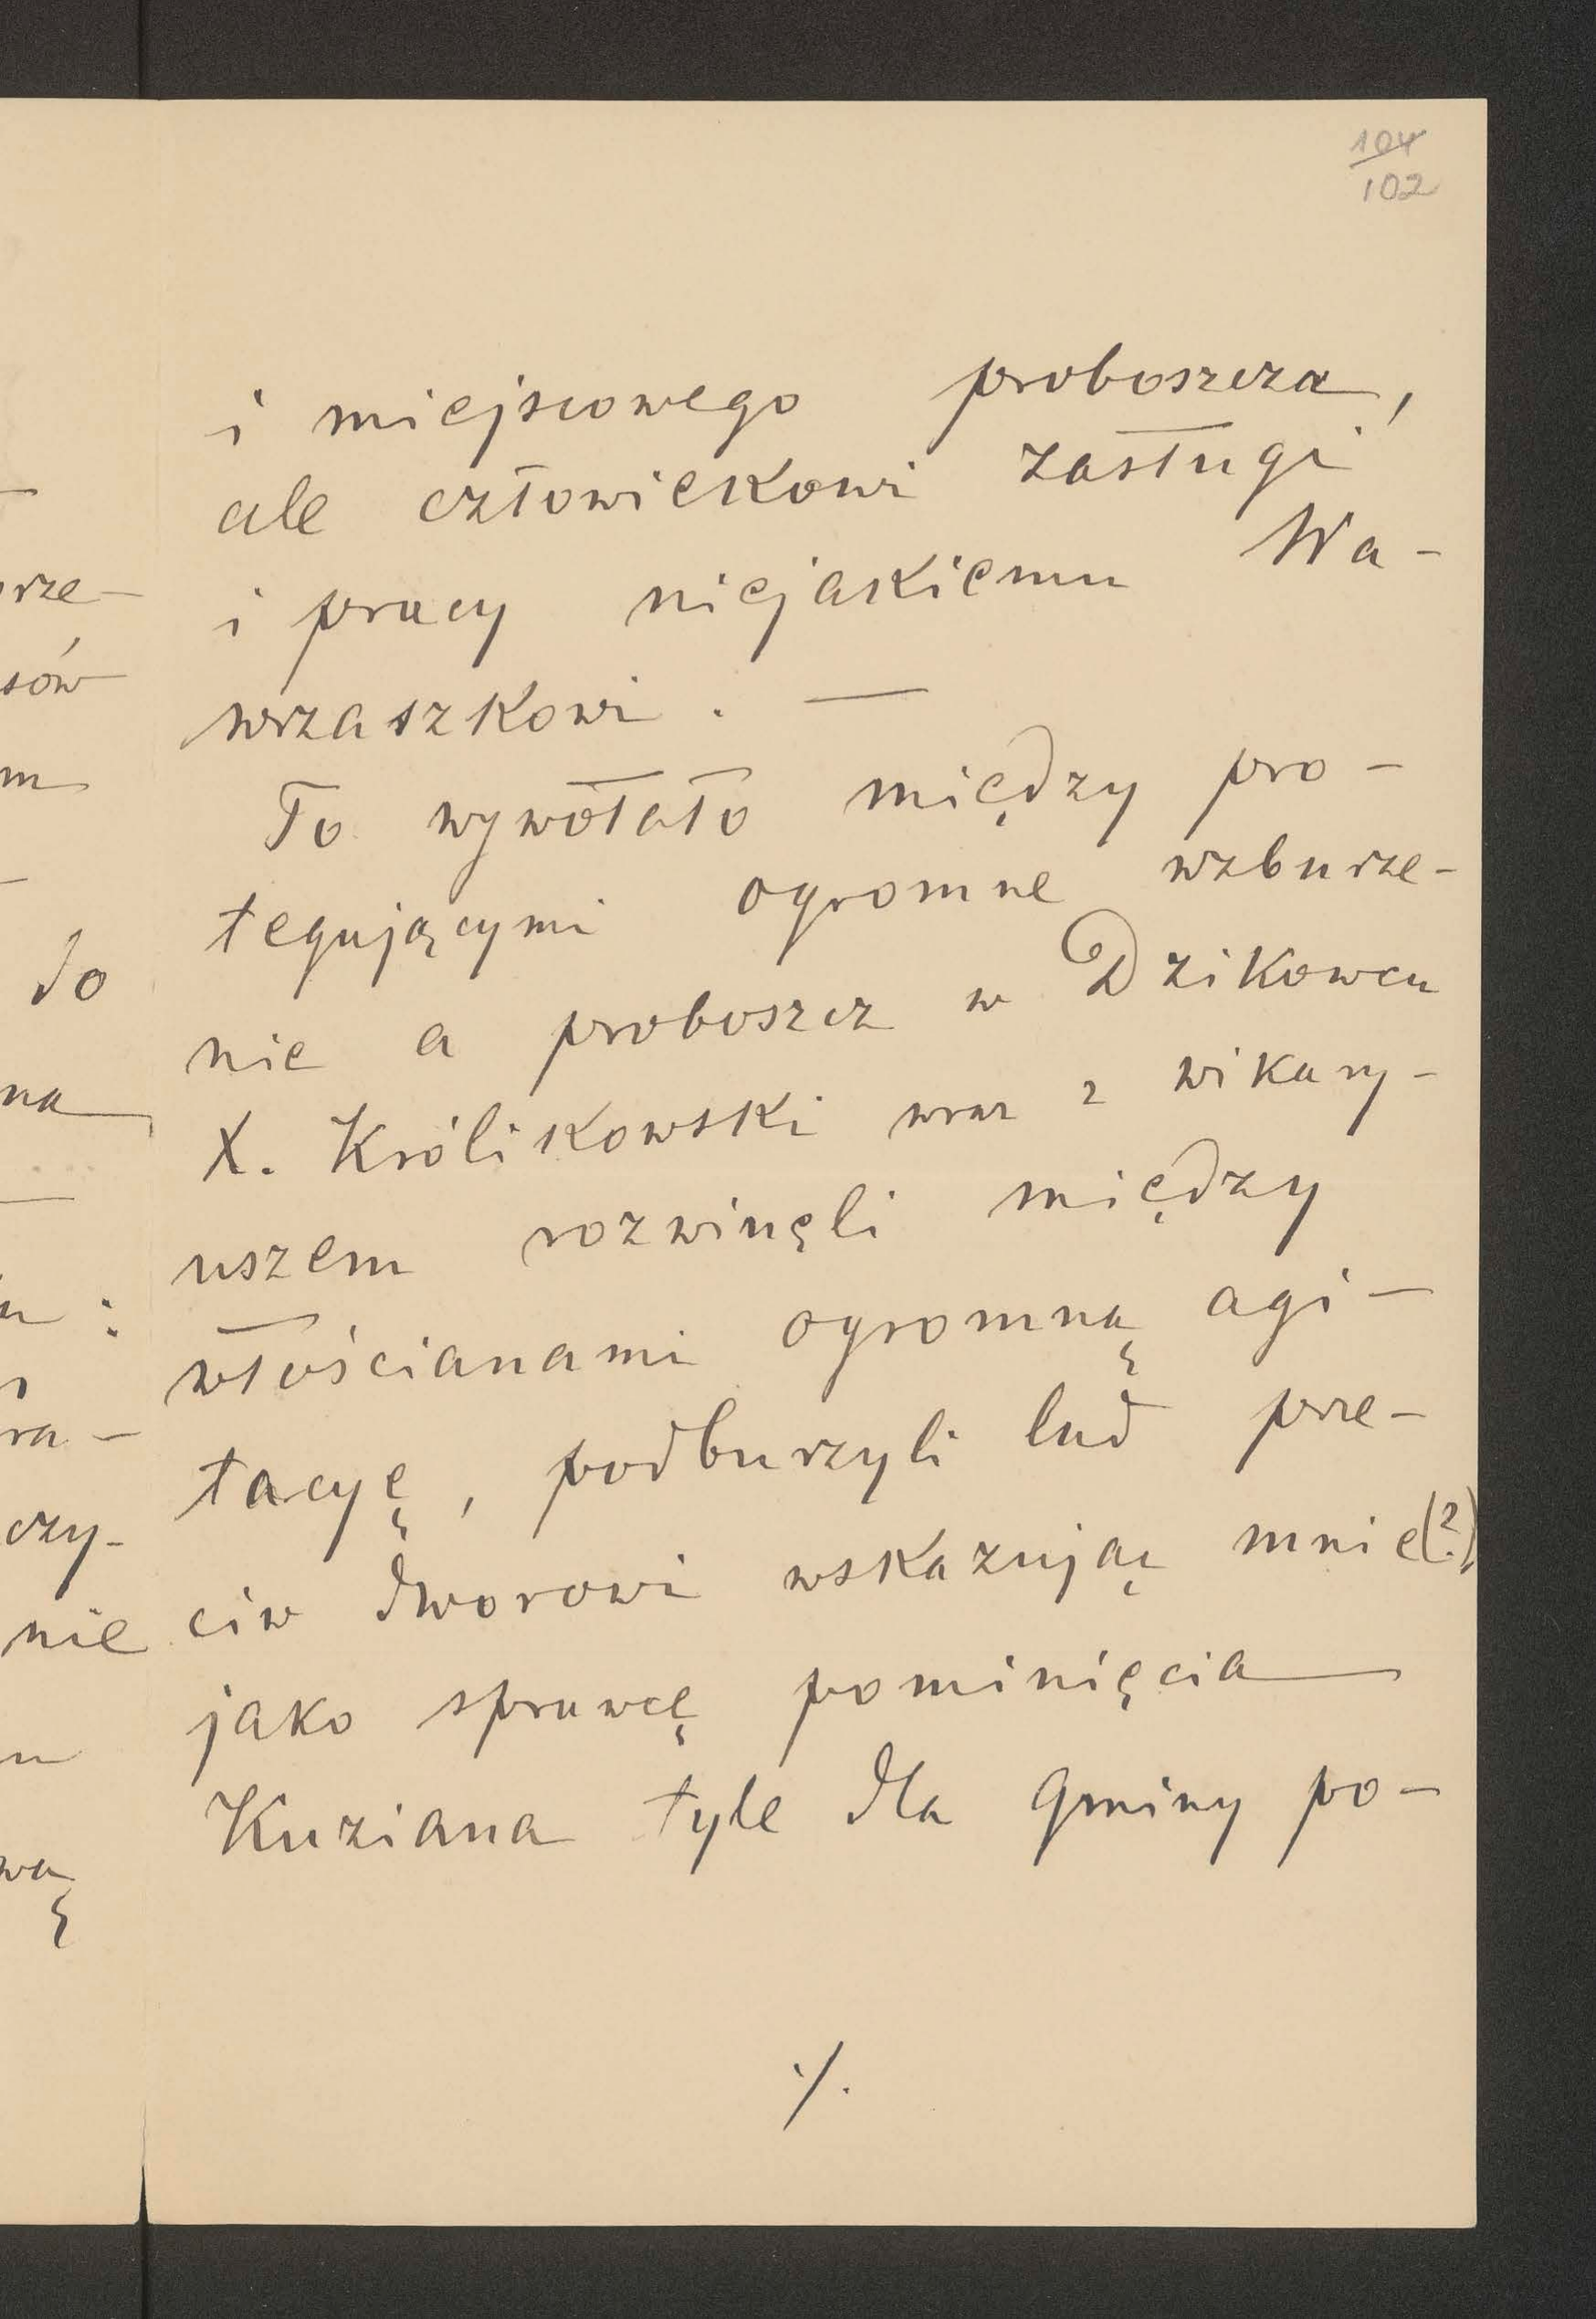 104
102
i miejscowego proboszcza,
ale człowiekowi zasługi
i pracy niejakiemu Wa-
wrzaszkowi. —
To wywołało między pro-
tegującymi ogromne wzburze-
nie a proboszcz w Dzikowcu
X. Królikowski wraz z wikary-
uszem rozwinęli między
włościanami ogromną agi-
tacyę, podburzyli lud prze-
ciw dworowi wskazując mnie(?)
jako sprawcę pominięcia
Kuziana tyle dla gminy po-
./.
rze-
sów
m
do
na
ra-
czy-
nie
wą